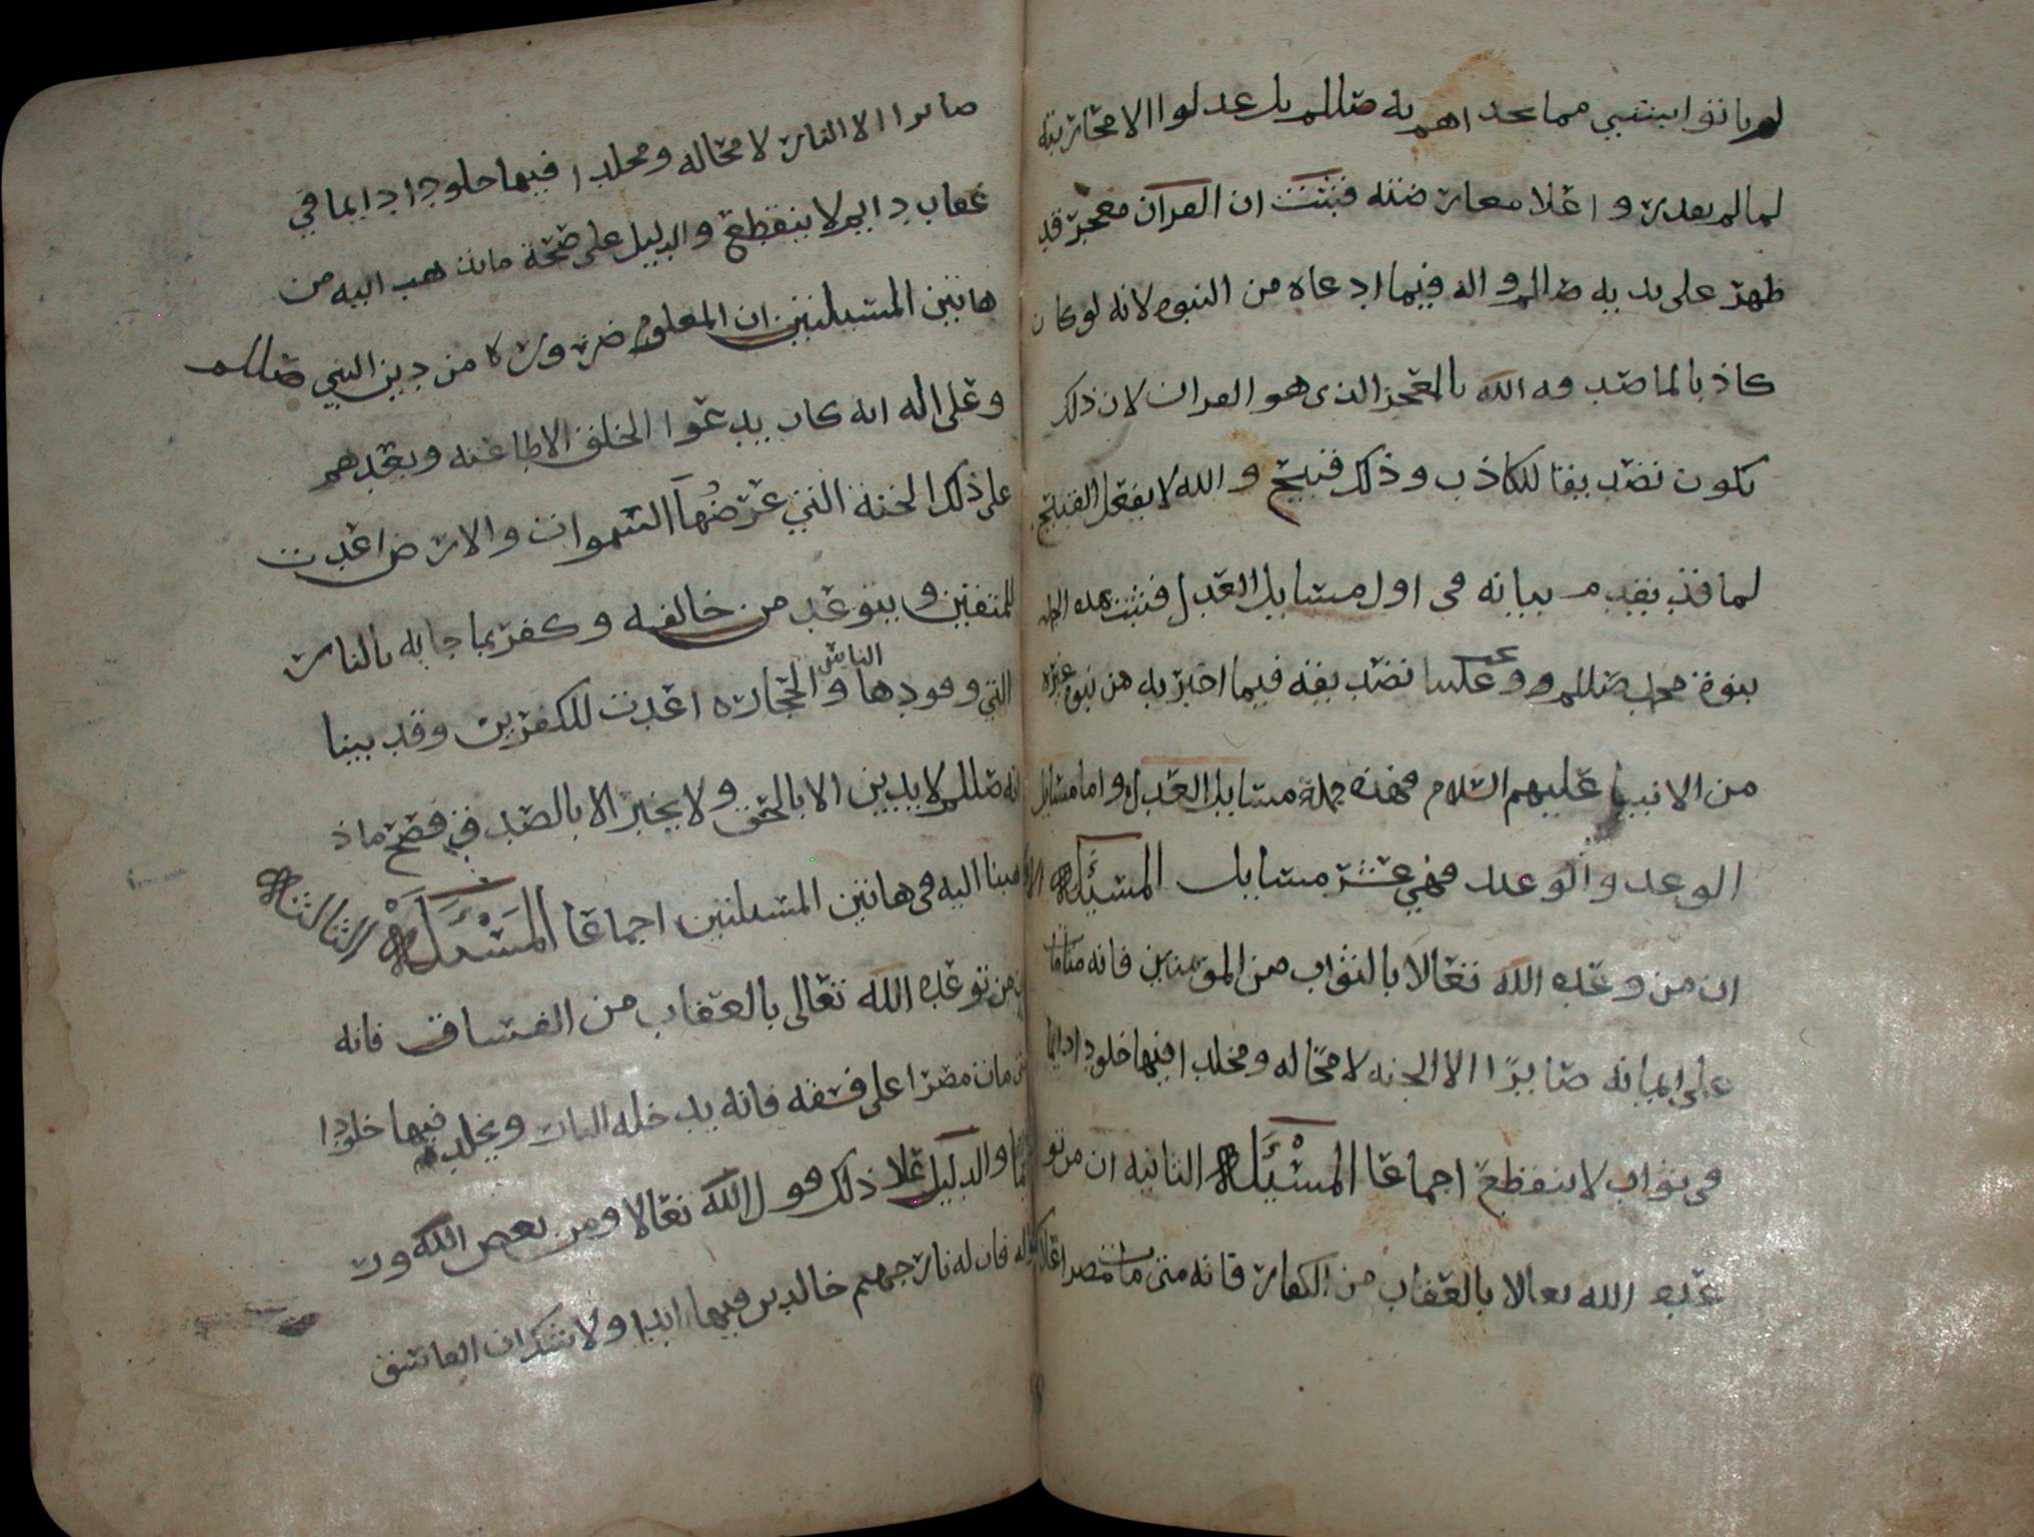 لم ياتوا بشي مما تحداهم به صللم بل عدلوا الا محاربته
لما لم يقدروا علا معارضته فثبت ان القرآن معجز قد
ظهر على يديه صللم واله فيما ادعاه من النبوه لانه لو كان
كاذبا لما صدقه الله بالمعجز الذى هو القران لان ذلك
يكون تصديقا للكاذب وذلك قبيح والله لا يفعل القبيح
لما قد تقدم بيانه فى اول مسايل العدل فثبت بهذه الجمله
نبوة محمد صللم ووجب علينا تصديقه فيما اخبر به من نبوة غيره
من الانبيا عليهم السلام فهذه جملة مسايل العدل واما مسايل
الوعد والوعيد فهي عشر مسايل المسئله الاولى
ان من وعده الله تعالا بالثواب من المومنين فانه متا مات
على ايمانه صايرا الا الجنه لا محاله ومخلدا فيها خلودا دايما
فى ثواب لا ينقطع اجماعا المسئله الثانيه ان من تو
عده الله تعالا بالعقاب من الكفار فانه متى مات مصرا علا كفره
صايرا الا النار لا محاله ومخلدا فيها خلودا دايما في
عقاب دايم لا ينقطع والدليل على صحة ما نذهب اليه من
هاتين المسئلتين ان المعلوم ضروره من دين النبي صللم
وعلى اله انه كان يدعوا الخلق الا طاعته ويعدهم
على ذلك الجنة التي عرضها السموات والارض اعدت
للمتقين ويتوعد من خالفه وكفر بما جا به بالنار
التي وقودها الناس والحجاره اعدت للكفرين وقد بينا
انه صللم لا يدين الا بالحق ولا يخبر الا بالصدق فصح ما ذ
هبنا اليه فى هاتين المسئلتين اجماعا المسئله الثالثه
ان من توعده الله تعالى بالعقاب من الفساق فانه
متى مات مصرا على فسقه فانه يدخله النار ويخلد فيها خلودا
دايما والدليل علا ذلك قول الله تعالا ومن يعص الله ور
سوله فان له نار جهنم خالدين فيها ابدا ولا شك ان الفاسق